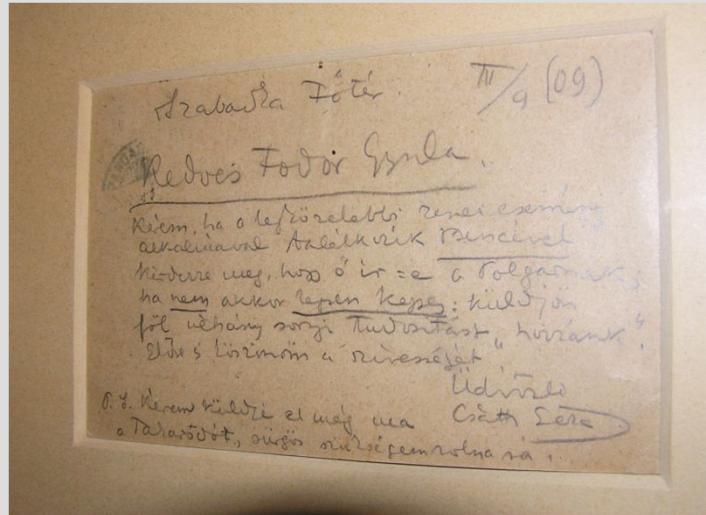 Szabadka Főtér. III/9 (09)
Kedves Fodor Gyula.
kérem, ha a legközelebbi zenei esemény
alkalmával találkozik Bencével
kérdezze meg, hogy ő ír=e a Polgárnak,
ha nem akkor legyen képes: küldjön
föl néhány sornyi tudósítást „hozzánk".
Előre is köszönöm a szívességét
Üdvözli
Csáth Géza
P. S. Kérem küldje el még ma
a, sürgős szükségem volna rá.